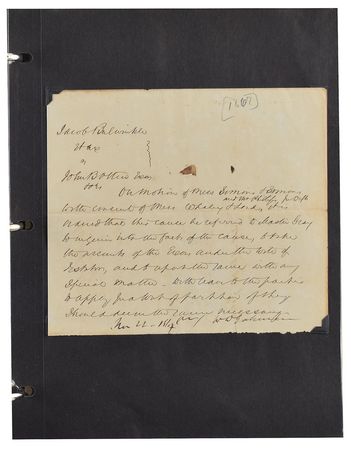 Jacob Bulwinkle
& als
vs
John B
Exors
On Motion of Mess Simons & Simons
and Mr Phillips
With the consent of Mess Whaley & Lord, it is
ordered that this cause be referred to Master Gray
to inquire into the facts of the cause, & take
the accounts of the Exors under the will of
Testator, and to report the same with any
Special matter – With leave to the parties
to apply for a Writ of partition if they
should deem the same necessary
Nov 22 – 184